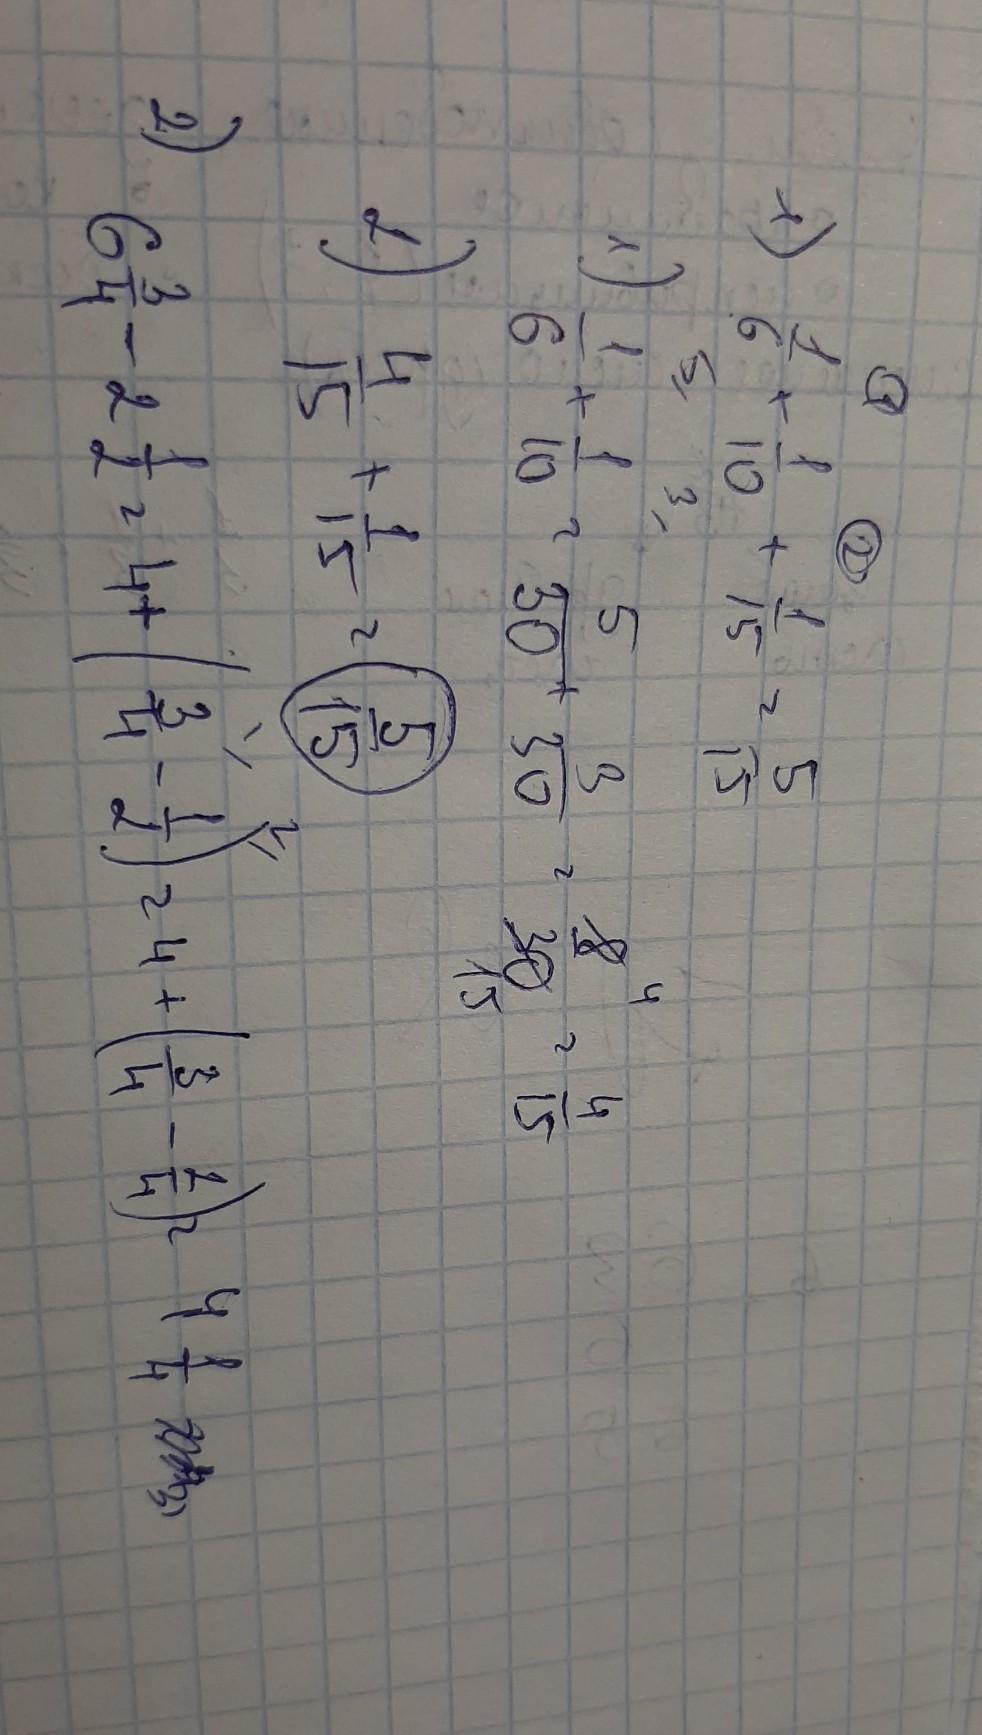 ① ②
1) 1/6 + 1/10 + 1/15 = 5/15
5, 3,
1) 1/6 + 1/10 = 5/30 + 3/30 = 8/30 4 15 = 4/15
2) 4/15 + 1/15 = 5/15
1, 2,
2) 6 3/4 - 2 1/2 = 4 + (3/4 - 1/2) = 4 + (3/4 - 2/4) = 4 1/4